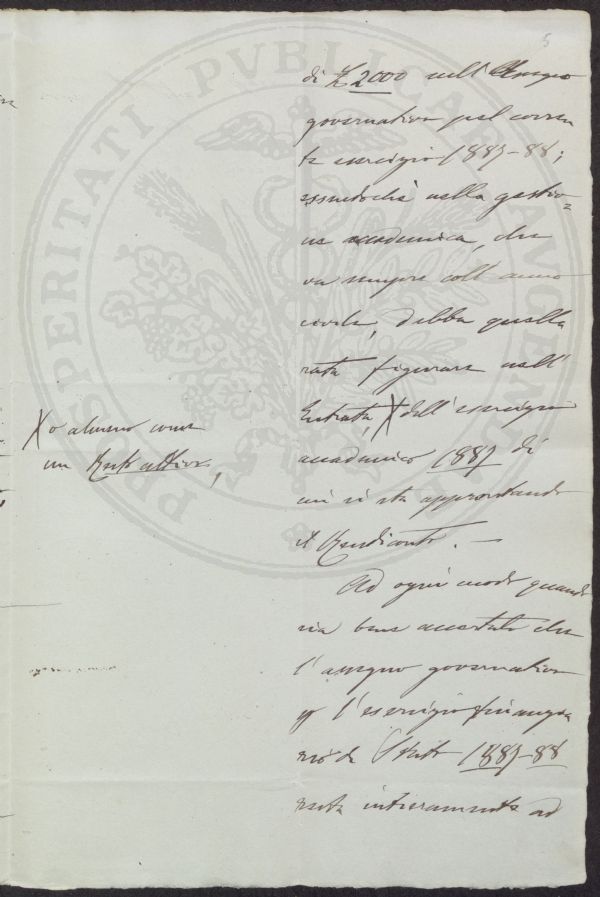 5
di £ 2000 nell'Assegno
governativo pel corren
te esercizio 1887-88;
essendoché nella gestio=
ne accademica, che
va sempre coll'anno
civile, debba quella
rata figurare nell'
Entrata, X dell'esercizio
accademico 1887 di
cui si sta approntando
il Rendiconto. —
Ad ogni modo quando
sia bene accertato che
l'assegno governativo
per l'esercizio finanzia
rio di Stato 1887-88
resta intieramente ad
X o almeno come
un Resto attivo,
PROSPERITATI PVBLICAE AVGENDAE